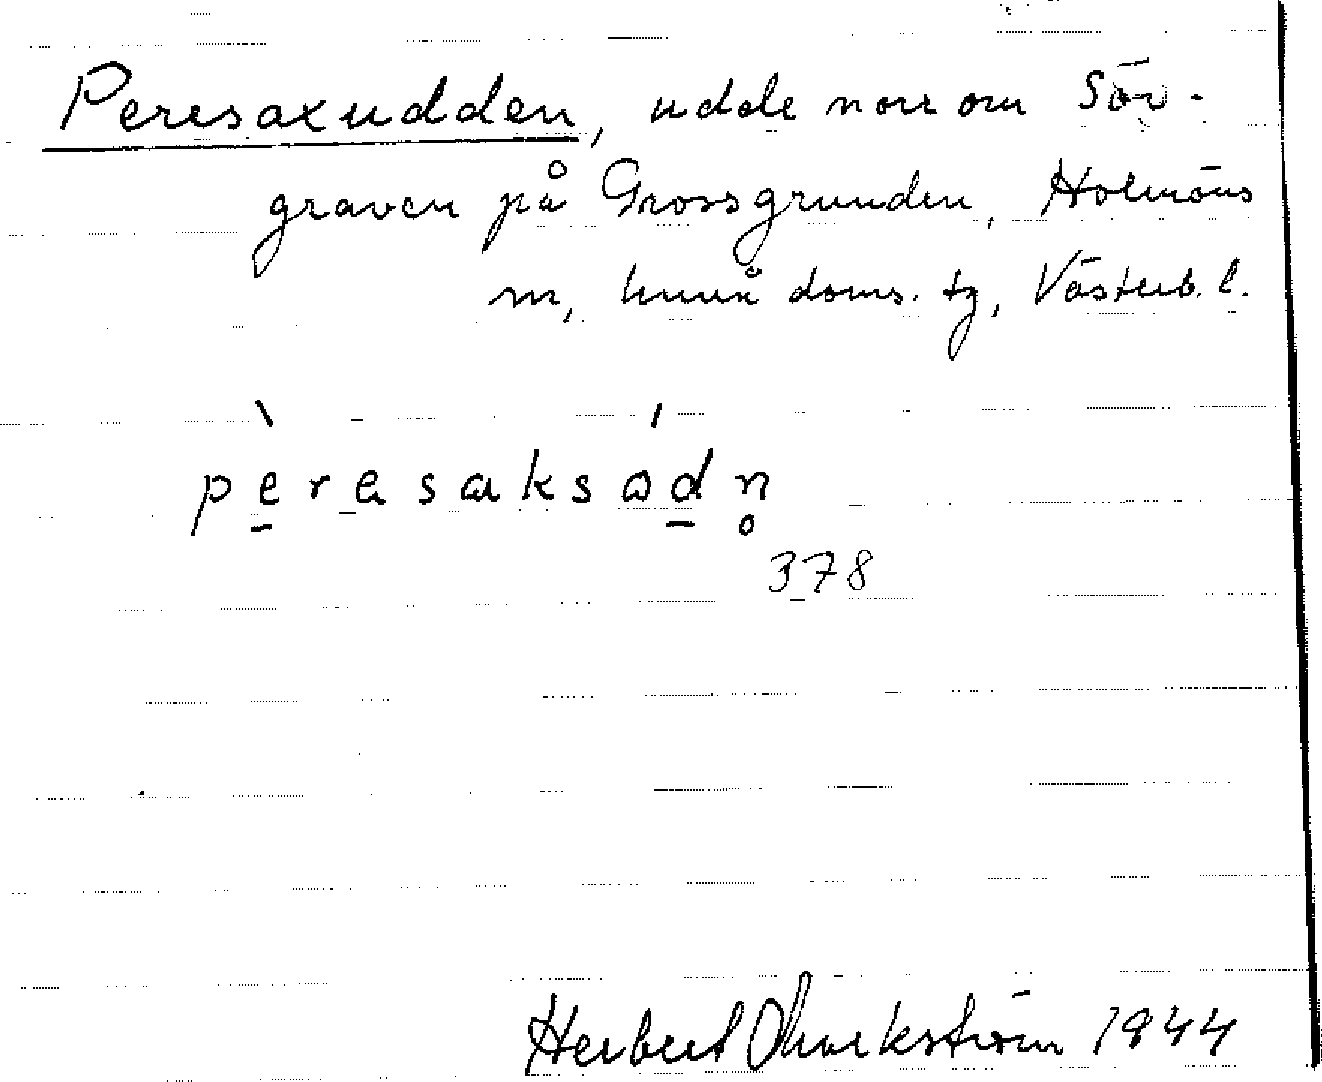 Peresaxudden, udde norr om Sör-
graven på Grossgrunden, Holmöns
sn, Umeå doms. tg, Västerb. l.
pèresaksɷ́dn̥
378
Herbert Markström 1944